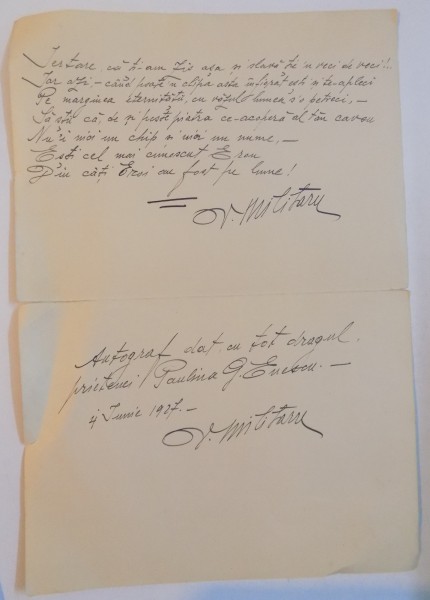 Iertare, că ți-am zis așa, și slavă ție 'n veci de veci!..
Iar azi, – când poate 'n clipa asta înfiorat ești și te-apleci
Pe marginea eternității, cu văzul lumea s'o petreci, –
Să știi că, de și peste piatra ce-acoperă al tău cavou
Nu-i nici un chip și nici un nume, –
Ești cel mai cunoscut Erou
Din câți Eroi au fost pe lume!
V. Militaru
Autograf dat cu tot dragul,
prietenei Paulina G. Enescu. –
4 Iunie 1927. –
V. Militaru